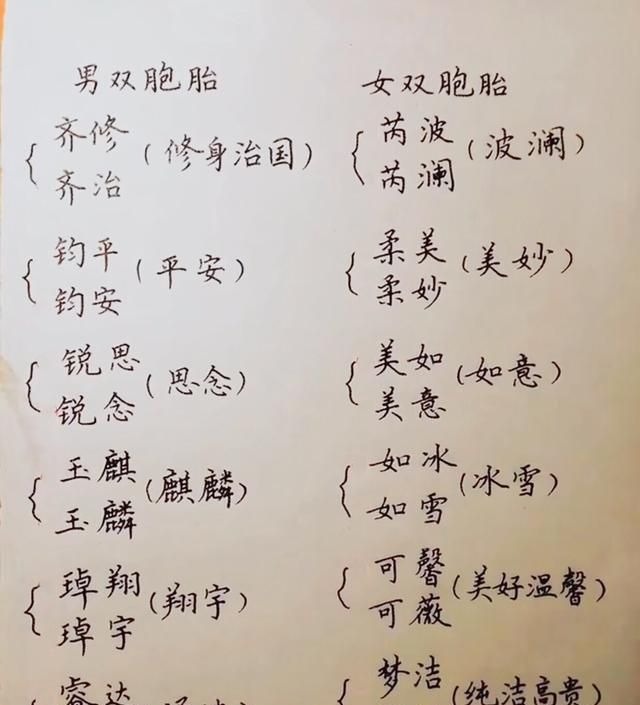 男双胞胎
齐修
齐治
(修身治国)
钧平
钧安
(平安)
锐思
锐念
(思念)
玉麒
玉麟
(麒麟)
琸翔
琸宇
(翔宇)
睿达
女双胞胎
芮波
芮澜
(波澜)
柔美
柔妙
(美妙)
美如
美意
(如意)
如冰
如雪
(冰雪)
可馨
可薇
(美好温馨)
梦洁
(纯洁高贵)